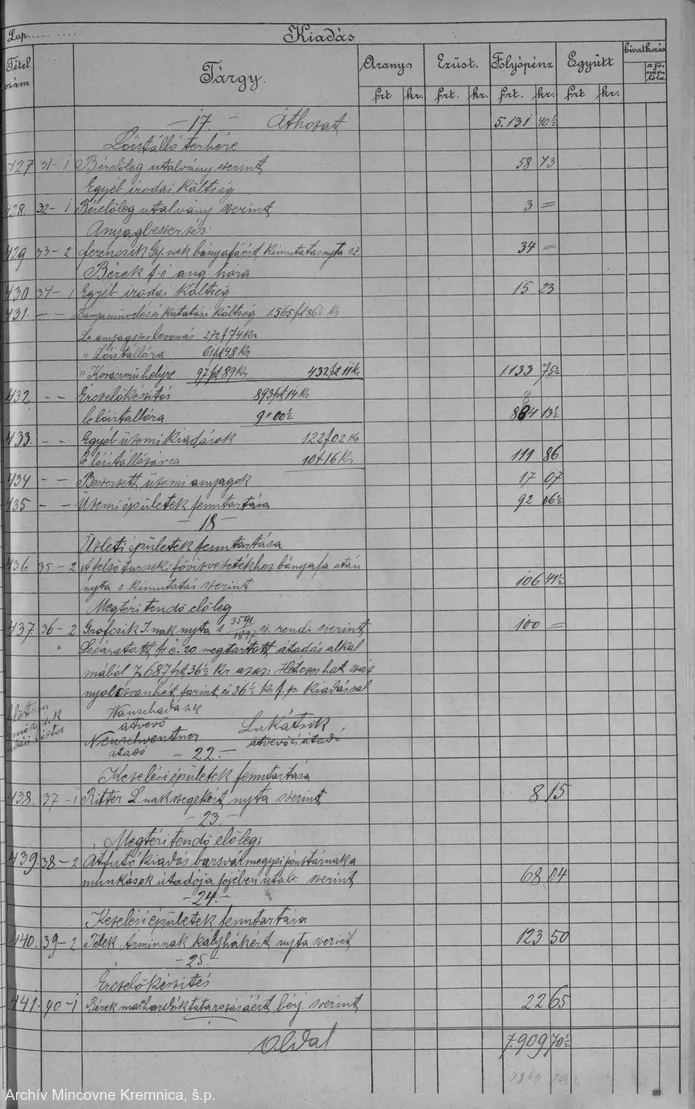 Lap
Kiadás
Tétel szám
Tárgy
Arany
Ezüst.
Folyópénz
Együtt
hivatkozás
frt kr. frt. kr. frt. kr. frt. kr.
— 17. — Áthozat 5.131 40½
Lóistálló terhére
427 31-1 Bérelőleg utalvány szerint 58 73
Egyéb irodai költség
428. 32-1 Bérelőleg utalvány szerint 3 =
Anyagbeszerzés:
429 33-2 Ferencsik Gy. nek bányafáért kimutatás nyta sz 34 =
Bérek f. é. aug. hóra
430 34-1 Egyéb irodai költség 15 23
431 -- kutatási költség 1565 ft 86½ Kr
Le 272 f 74 Kr
" Lóistállóra 61 ft 48 Kr
" Kovácsműhelyre 97 ft 89 Kr 432 ft 11 Kr 1133 75½
432 -- Ércelőkészítés 893 ft 14 Kr
le lóistállóra 9" 00½ 884 13½
433 -- Egyéb üzemi kiadások 122 f 02 Kr
le 10 f 16 Kr 111 86
434 -- üzemi anyagok 17 07
435 -- Üzemi épületek fenntartása 92 06½
— 18 —
Üzleti épületek fenntartása
436 35-2 A felső turcseki bányafa után
nyta s kimutatás szerint 106 41½
Megtérítendő előleg
437 36-2 Grófcsik I. nak nyta s 3591/1897 sz. rend. szerint 100 =
Lezáratott, f. é. 20 megtartott átadás alkal
mából 7.687 frt 36½ Kr azaz: Hétezer hat száz
nyolczvanhét forint és 36½ kr f. p. kiadással
Előttem
átvevő
Lukátsik
átvevő és átadó
átadó
— 22. —
Kezelési épületek fenntartása
438. 37-1 Ritter L. nak szegekért, nyta szerint 8 15
— 23. —
Megtérítendő előleg:
439. 38-2 Átfutó kiadás barsvármegyei pénztárnak a
munkások útadója fejében utalv. szerint 68 14
— 24. —
Kezelési épületek fenntartása
440. 39-2 Telek Árminnak kályhákért nyta szerint 123 50
— 25 —
Ércelőkészítés
441. 40-1 Bérek tatarozásáért bérj szerint 22 65
Oldal 7.909 70½
Archív Mincovne Kremnica, š.p.